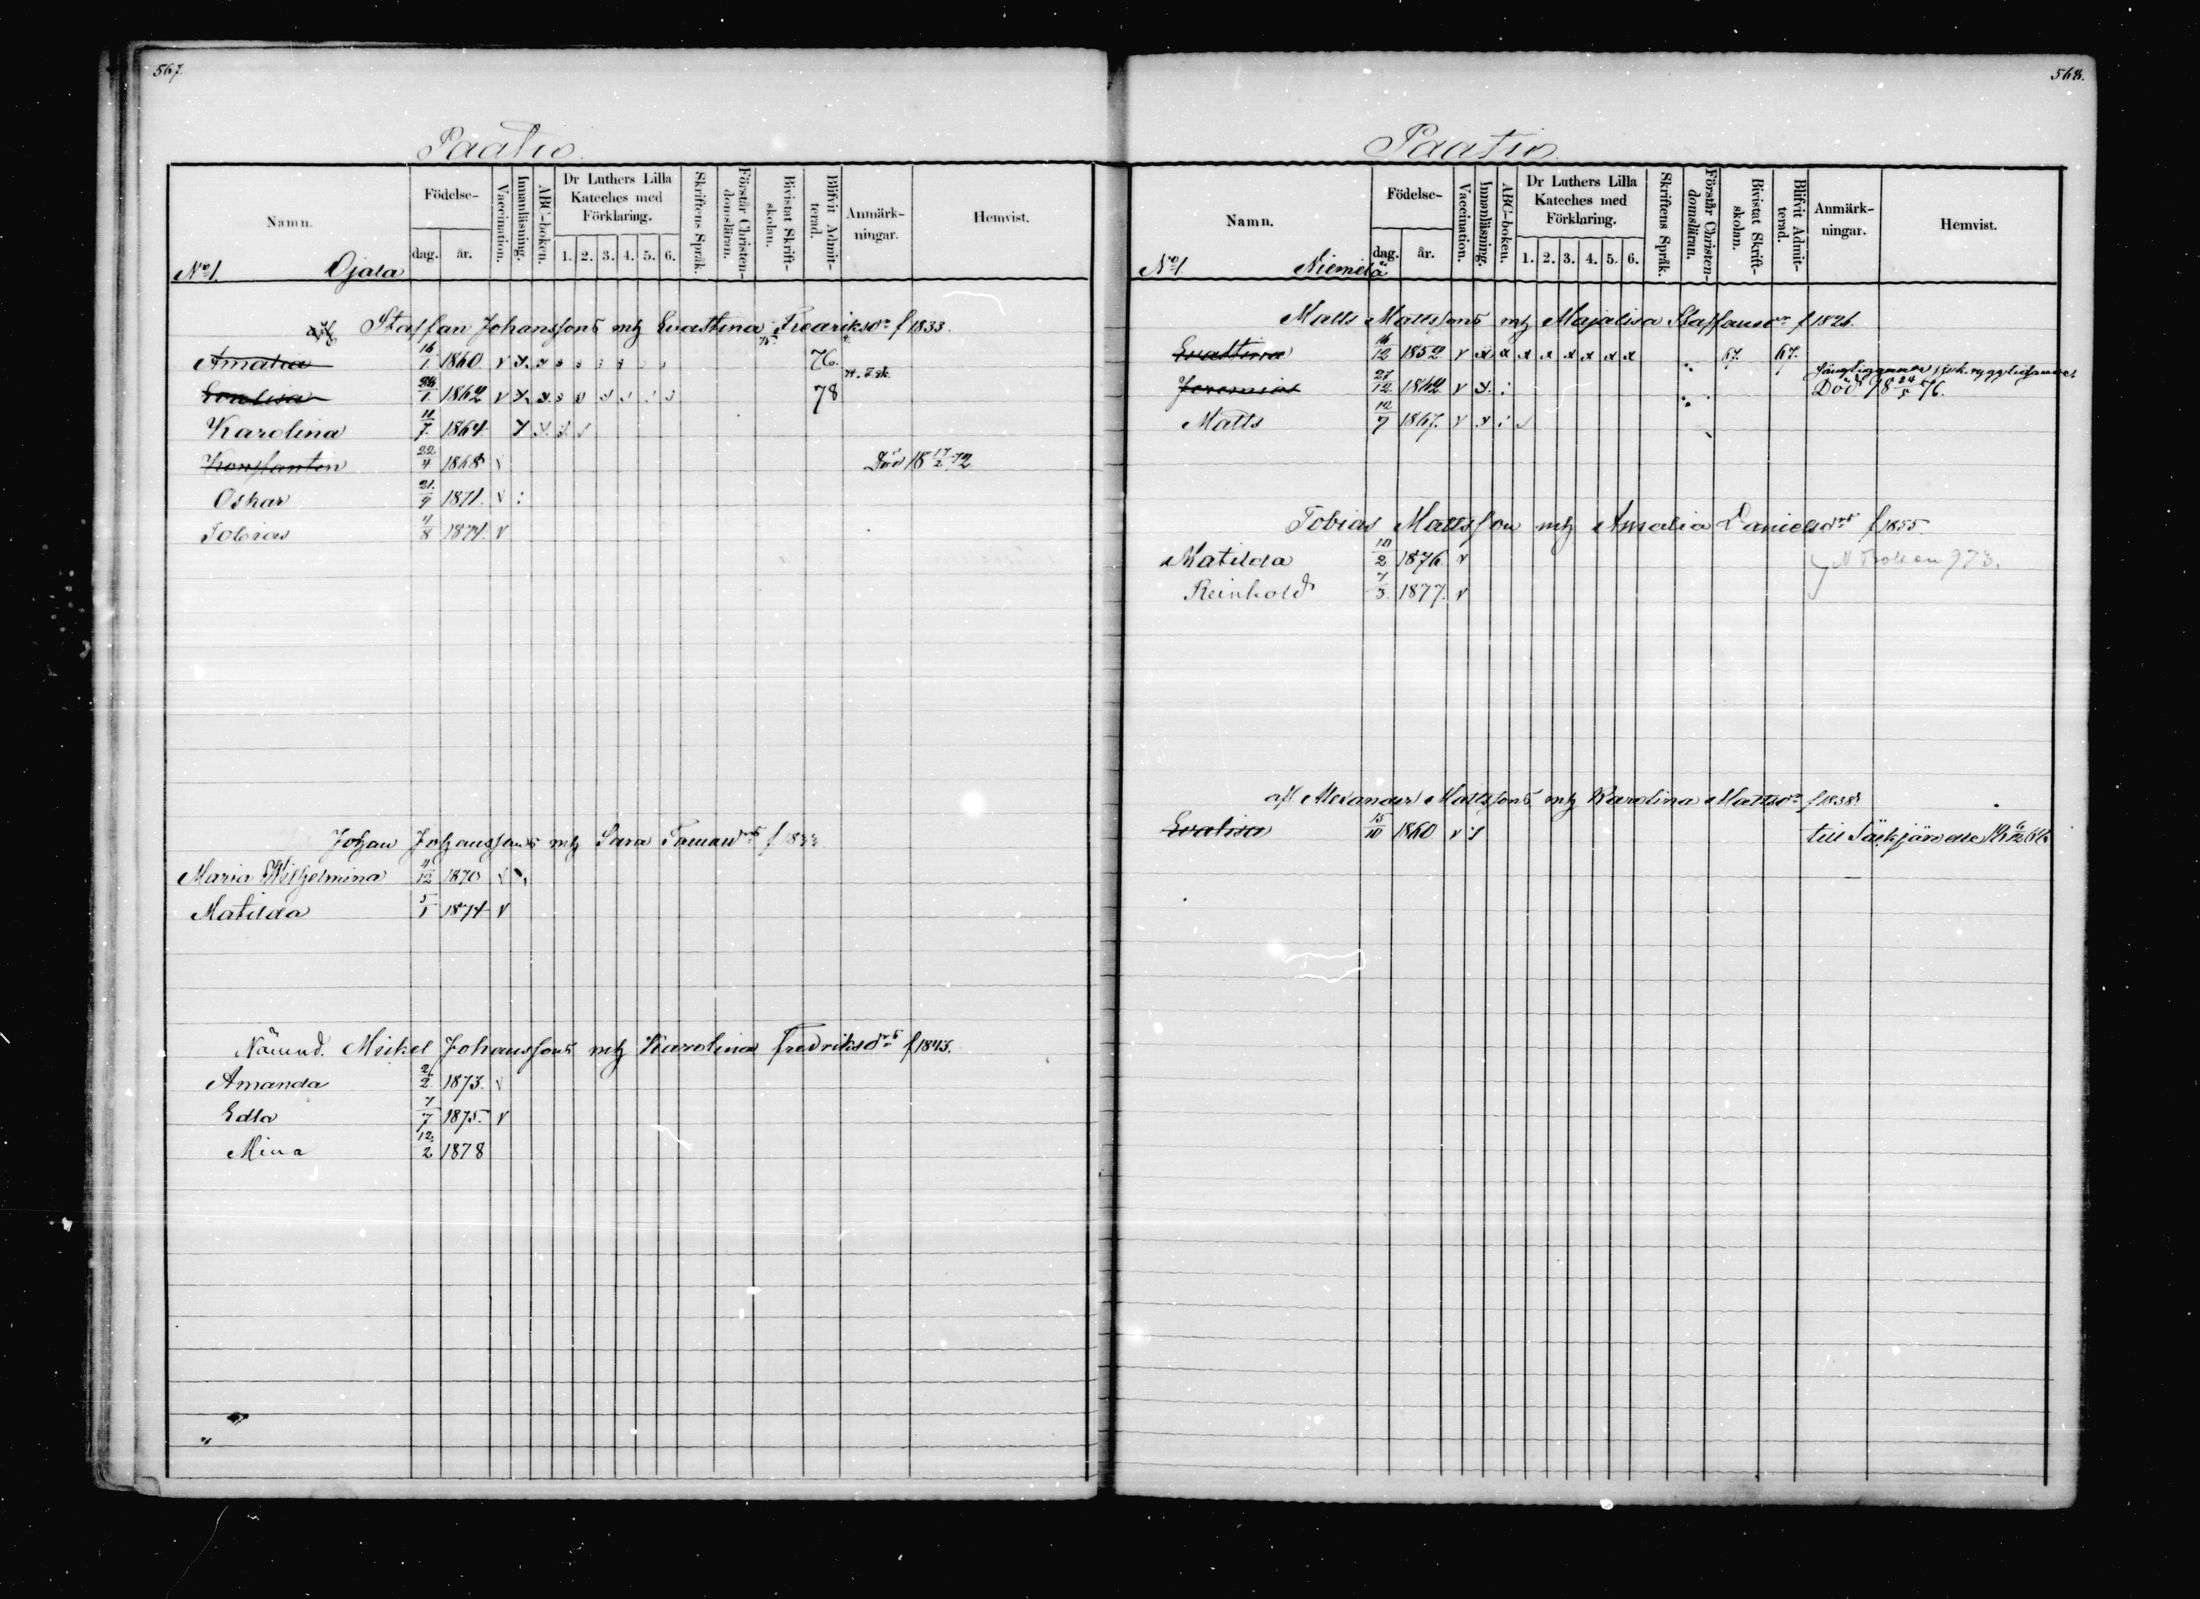 567.
Paatio.
Namn.
Födelse-
dag.
år.
Vaccination.
Innanläsning.
ABC-boken.
Dr Luthers Lilla
Kateches med
Förklaring.
1. 2. 3. 4. 5. 6.
Skriftens Språk.
Förstår Christen-
domsläran.
Bivistat Skrift-
skolan.
Blifvit Admit-
terad.
Anmärk-
ningar.
Hemvist.
No 1. Ojala
Staffan Johanssons mh Evastina Fredriksdr f 1833.
Amalia 16/1 1860 v 76.
Evalisa 26/1 1862 v 78
Karolina 11/7 1864
Konstantin 22/4 1868 v Död 18 17/2 72
Oskar 21/9 1871. v
Tobias 4/8 1874. v
Johan Johanssons mh Sara
Maria Wilhelmina 4/12 1870 v
Matilda 5/1 1874 v
Mikel Johanssons mh Karolina Fredriksdrs f 1843.
Amanda 2/2 1873. v
Edla 7/7 1875. v
Mina 12/2 1878
568.
Paatio
Namn.
Födelse-
dag.
år.
Vaccination.
Innanläsning.
ABC-boken.
Dr Luthers Lilla
Kateches med
Förklaring.
1. 2. 3. 4. 5. 6.
Skriftens Språk.
Förstår Christen-
domsläran.
Bivistat Skrift-
skolan.
Blifvit Admit-
terad.
Anmärk-
ningar.
Hemvist.
No 1 Niemelä
Matts Mattssons mh Majalisa Staffansdr f 1826.
Evastina 16/12 1852 v x x x x x x x x 67. 67.
Jeremias 27/12 1862 v Död 18 24/5 76.
Matts 12/9 1867. v
Tobias Mattsson mh Amalia Danielsdrs f 1855.
Matilda 10/2 1876 v
Reinhold 7/3 1877. v
973.
afl Alexander Mattssons mh Karolina Mattsdr f 1838
Evalisa 15/10 1860 v till Säkjärvi